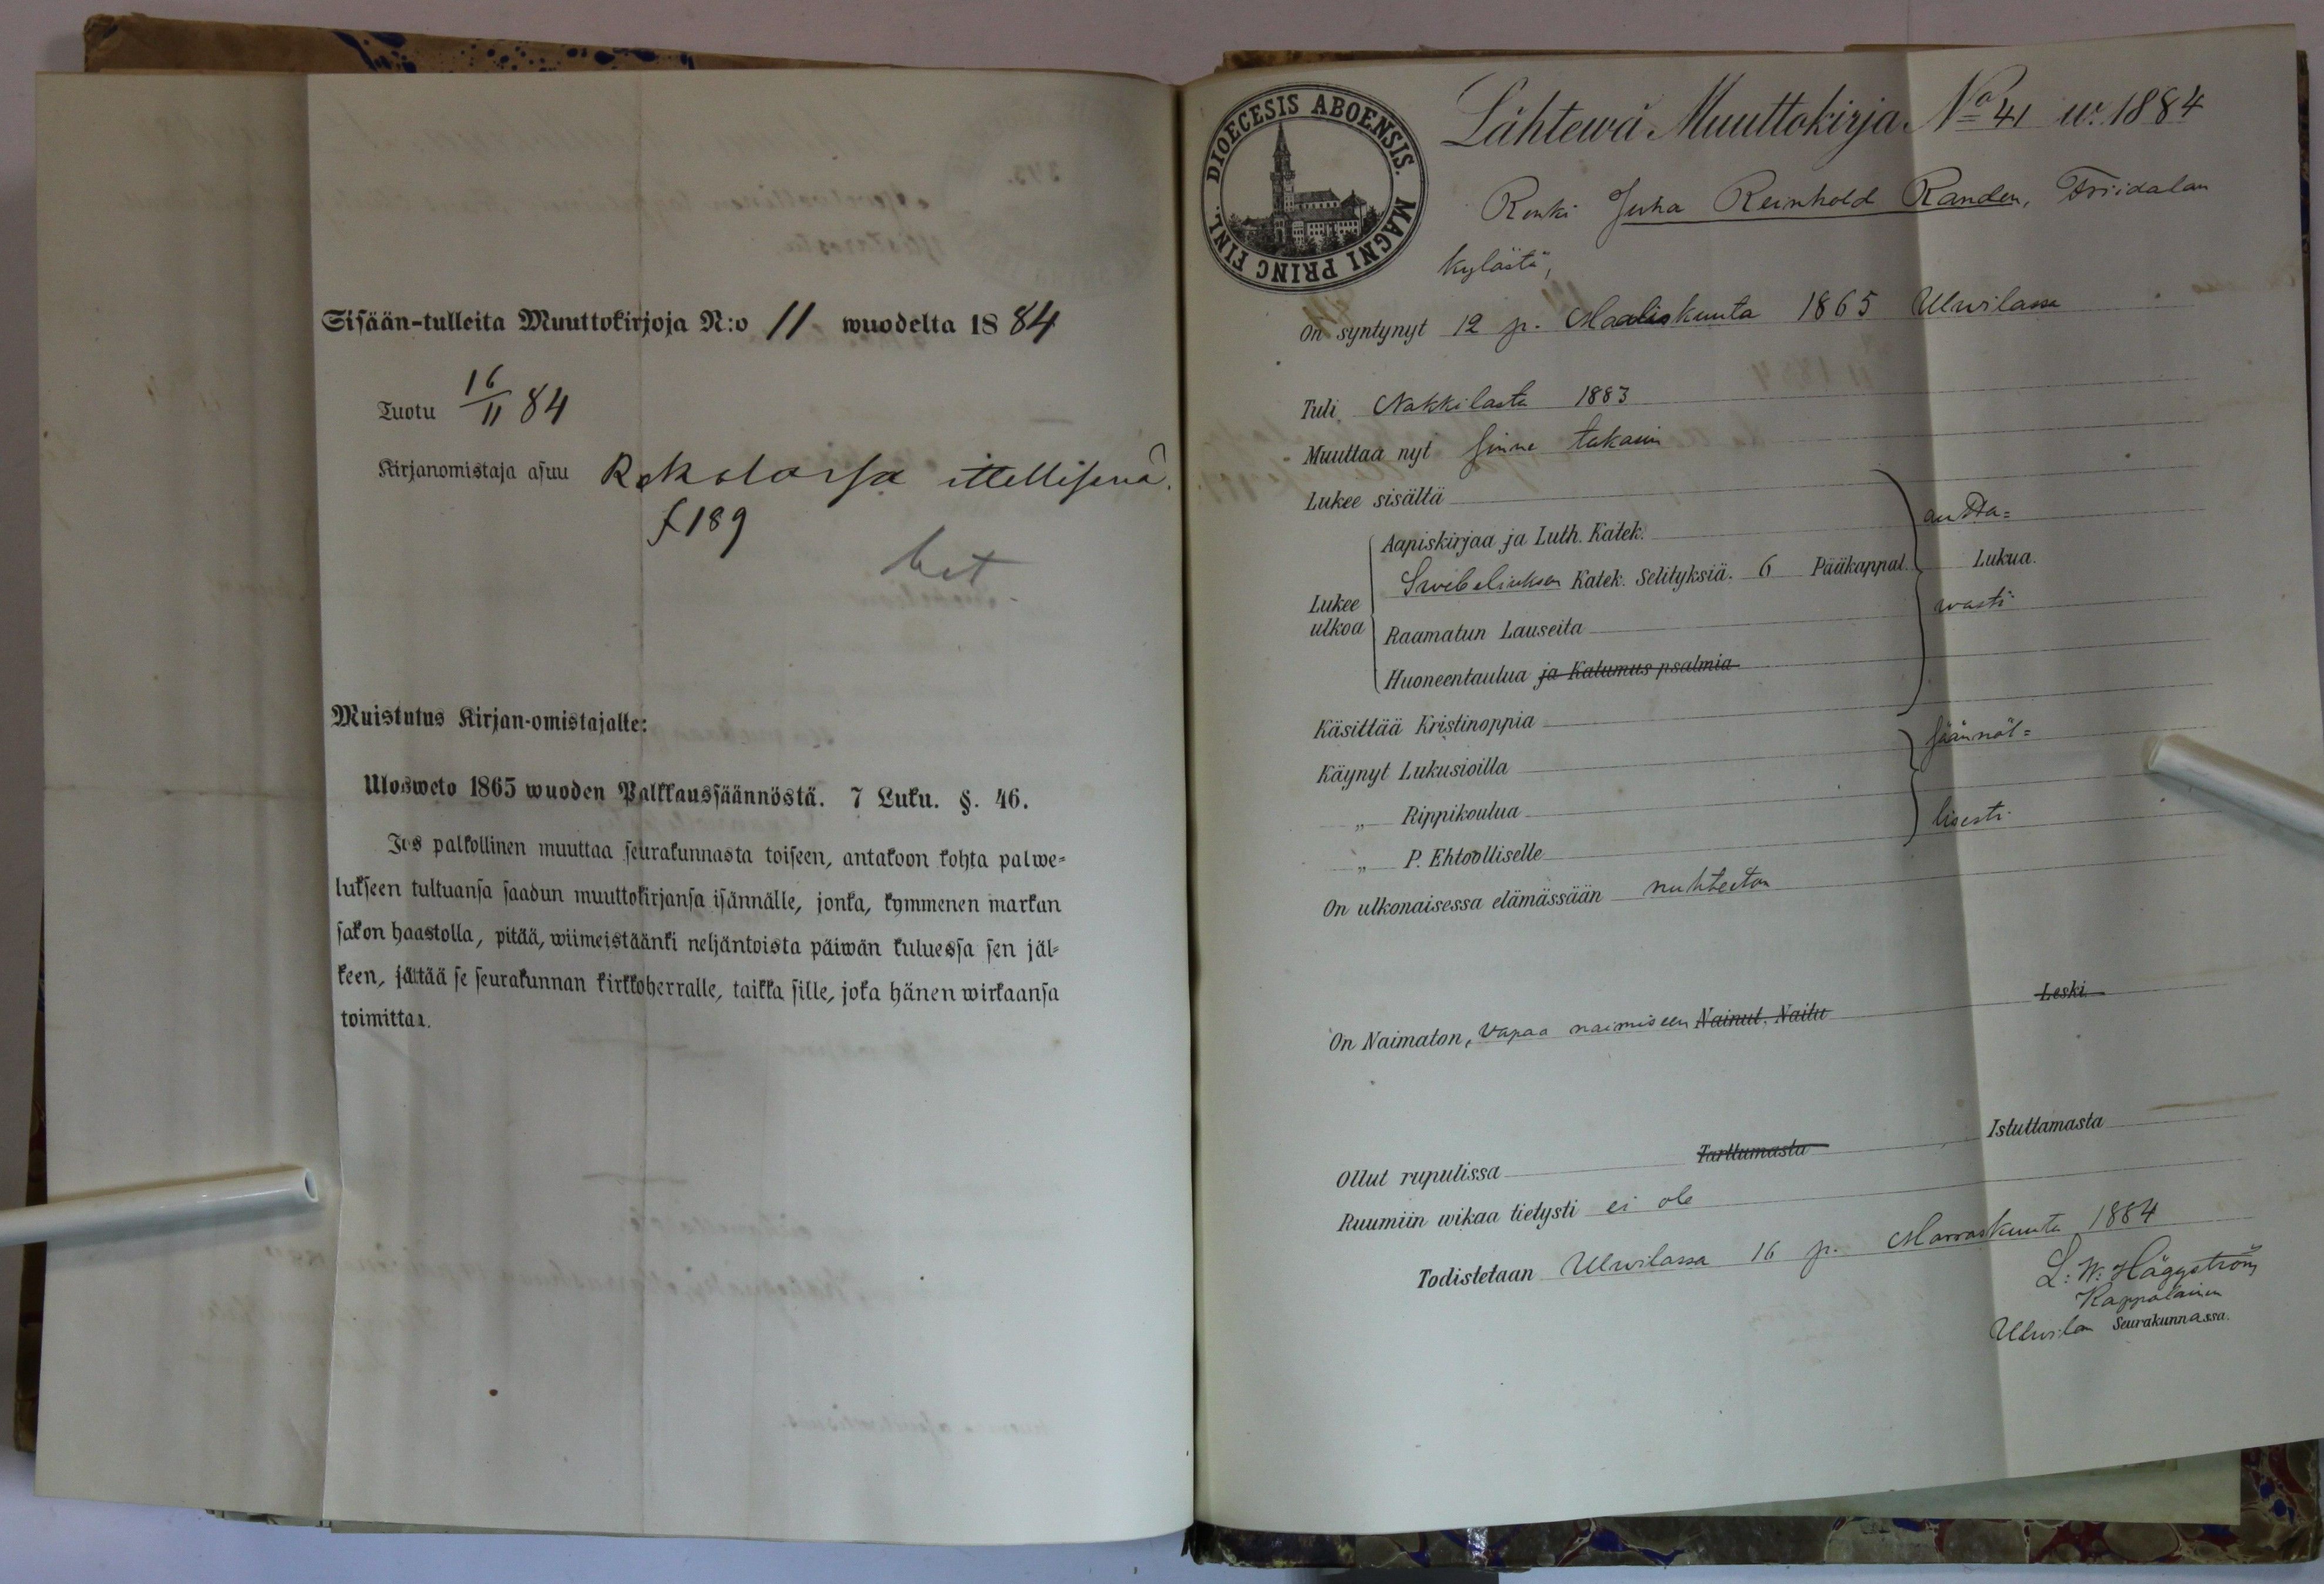 Sisään-tulleita Muuttokirjoja N:o 11 wuodelta 1884
Tuotu 16/11 84
Kirjanomistaja asuu ittellisenä.
f 189
Muistutus Kirjan-omistajalle:
Ulosweto 1865 wuoden Palkkaussäännöstä. 7 Luku. §. 46.
Jos palkollinen muuttaa seurakunnasta toiseen, antakoon kohta palwe=
lukseen tultuansa saadun muuttokirjansa isännälle, jonka, kymmenen markan
sakon haastolla, pitää, wiimeistäänki neljäntoista päiwän kuluessa sen jäl=
keen, jättää se seurakunnan kirkkoherralle, taikka sille, joka hänen wirkaansa
toimittaa.
DIOECESIS ABOENSIS. MAGNI PRINC FINL.
Lähtewä Muuttokirja No 41 w. 1884
Renki Juha Reinhold Randen, Friidalan
kylästä,
On syntynyt 12 p. Maaliskuuta 1865 Ulwilassa
Tuli Nakkilasta 1883
Muuttaa nyt sinne takasin
Lukee sisältä
Aapiskirjaa ja Luth. Katek. autta=
Swebeliuksen Katek. Selityksiä. 6 Pääkappal. Lukua.
Lukee ulkoa
Raamatun Lauseita wasti
Huoneentaulua ja Katumus psalmia
Käsittää Kristinoppia
Käynyt Lukusioilla säännöl=
„ Rippikoulua
„ P. Ehtoolliselle lisesti.
On ulkonaisessa elämässään nuhteeton
On Naimaton, vapaa naimiseen Nainut, Naitu Leski
Ollut rupulissa Tarttumasta Istuttamasta
Ruumiin wikaa tietysti ei ole
Todistetaan Ulwilassa 16 p. Marraskuuta 1884
L: W: Häggström
Kappalainen
Ulwilan Seurakunnassa.